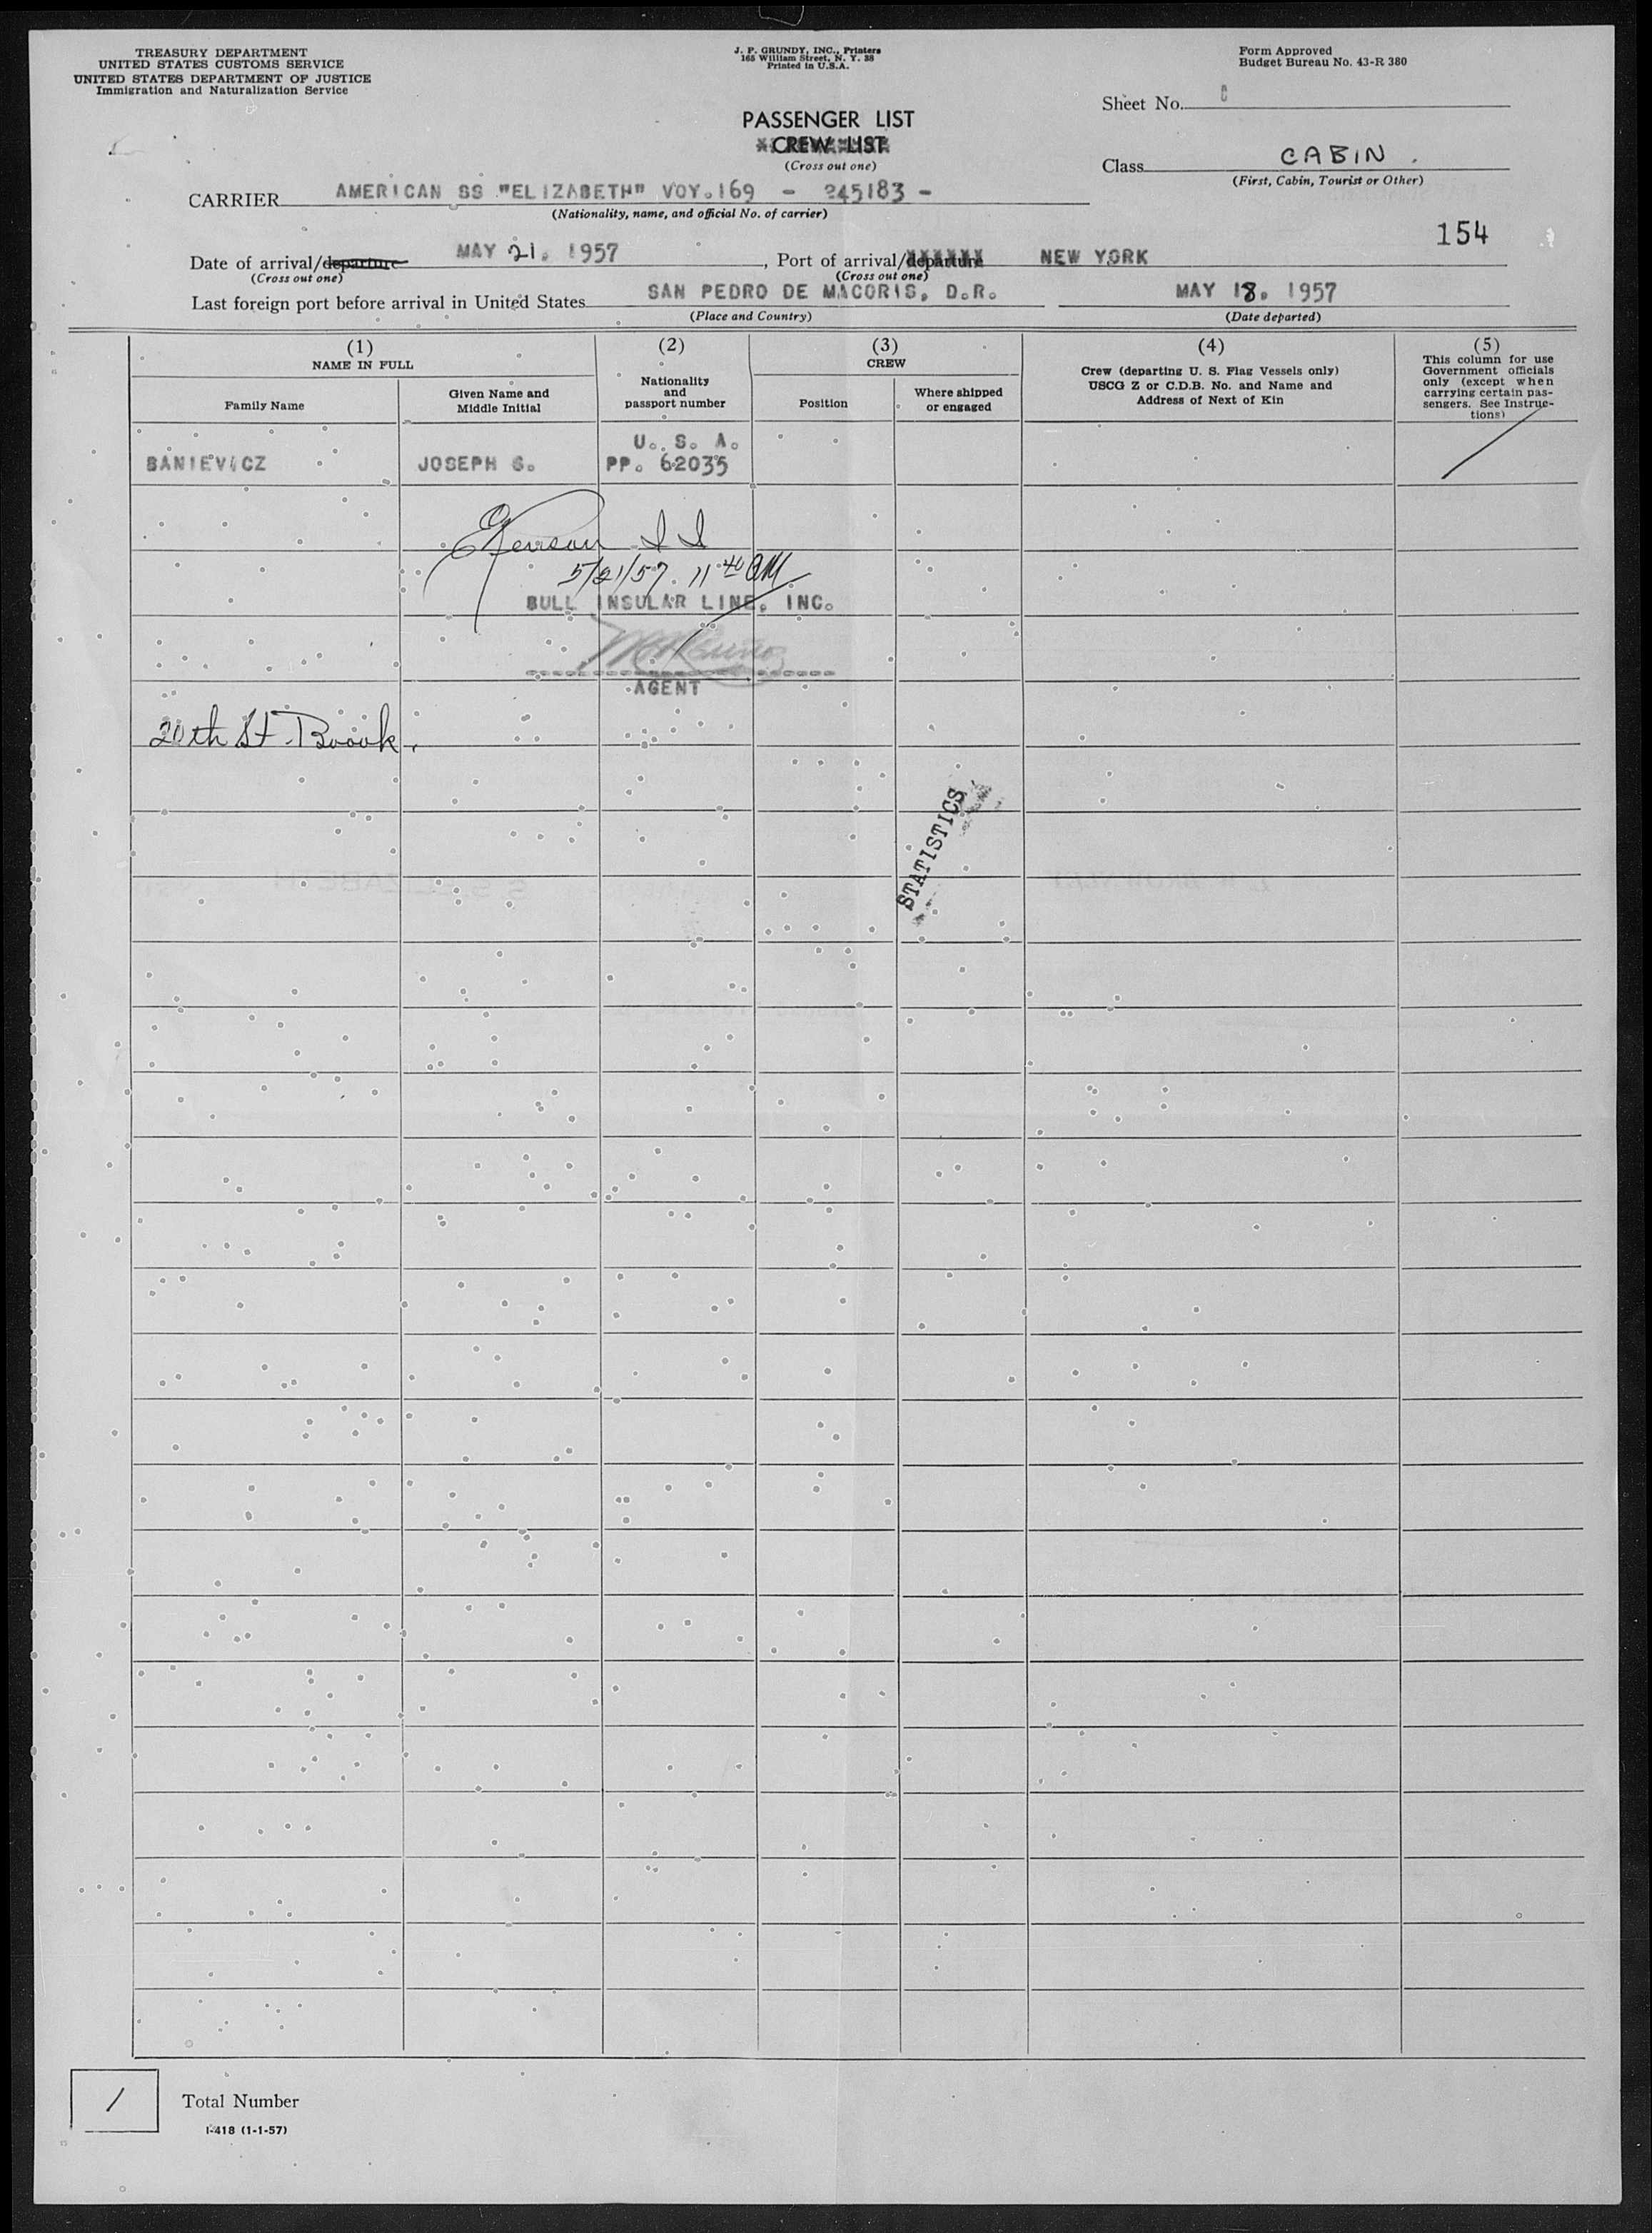 TREASURY DEPARTMENT
UNITED STATES CUSTOMS SERVICE
UNITED STATES DEPARTMENT OF JUSTICE
Immigration and Naturalization Service
J. P. GRUNDY, INC., Printers
165 William Street, N. Y. 38
Printed in U.S.A.
Form Approved
Budget Bureau No. 43-R 380
Sheet No.
PASSENGER LIST
CREW LIST
(Cross out one)
Class CABIN
(First, Cabin, Tourist or Other)
CARRIER AMERICAN SS "ELIZABETH" VOY.169 - 245183 -
(Nationality, name, and official No. of carrier)
154
Date of arrival/departure MAY 21. 1957, Port of arrival/departure NEW YORK
(Cross out one) (Cross out one)
Last foreign port before arrival in United States SAN PEDRO DE MACORIS, D.R. MAY 18, 1957
(Place and Country) (Date departed)
(1) (2) (3) (4) (5)
NAME IN FULL
Family Name
Given Name and
Middle Initial
Nationality
and
passport number
CREW
Position
Where shipped
or engaged
Crew (departing U. S. Flag Vessels only)
USCG Z or C.D.B. No. and Name and
Address of Next of Kin
This column for use
Government officials
only (except when
carrying certain pas-
sengers. See Instruc-
tions)
U. S. A.
BANIEVICZ JOSEPH S. PP. 62035
I I
5/21/57. 11 40 AM
BULL INSULAR LINE, INC.
AGENT
20th St. Brook.
STATISTICS
1 Total Number
I-418 (1-1-57)